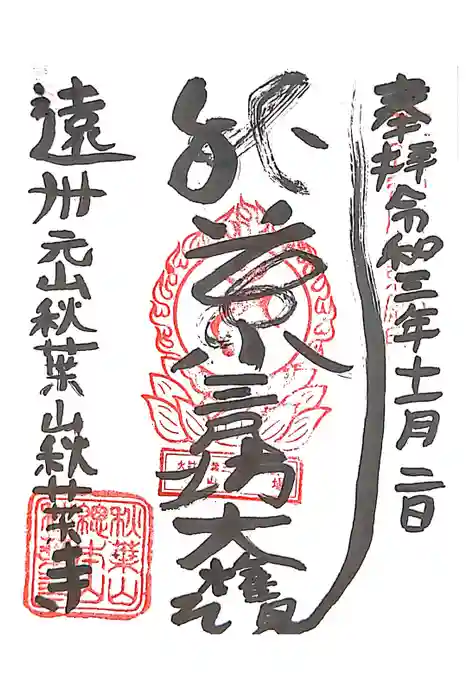 奉拝令和三年十一月二日
秋葉三尺坊大権現
遠州元山秋葉山秋葉寺